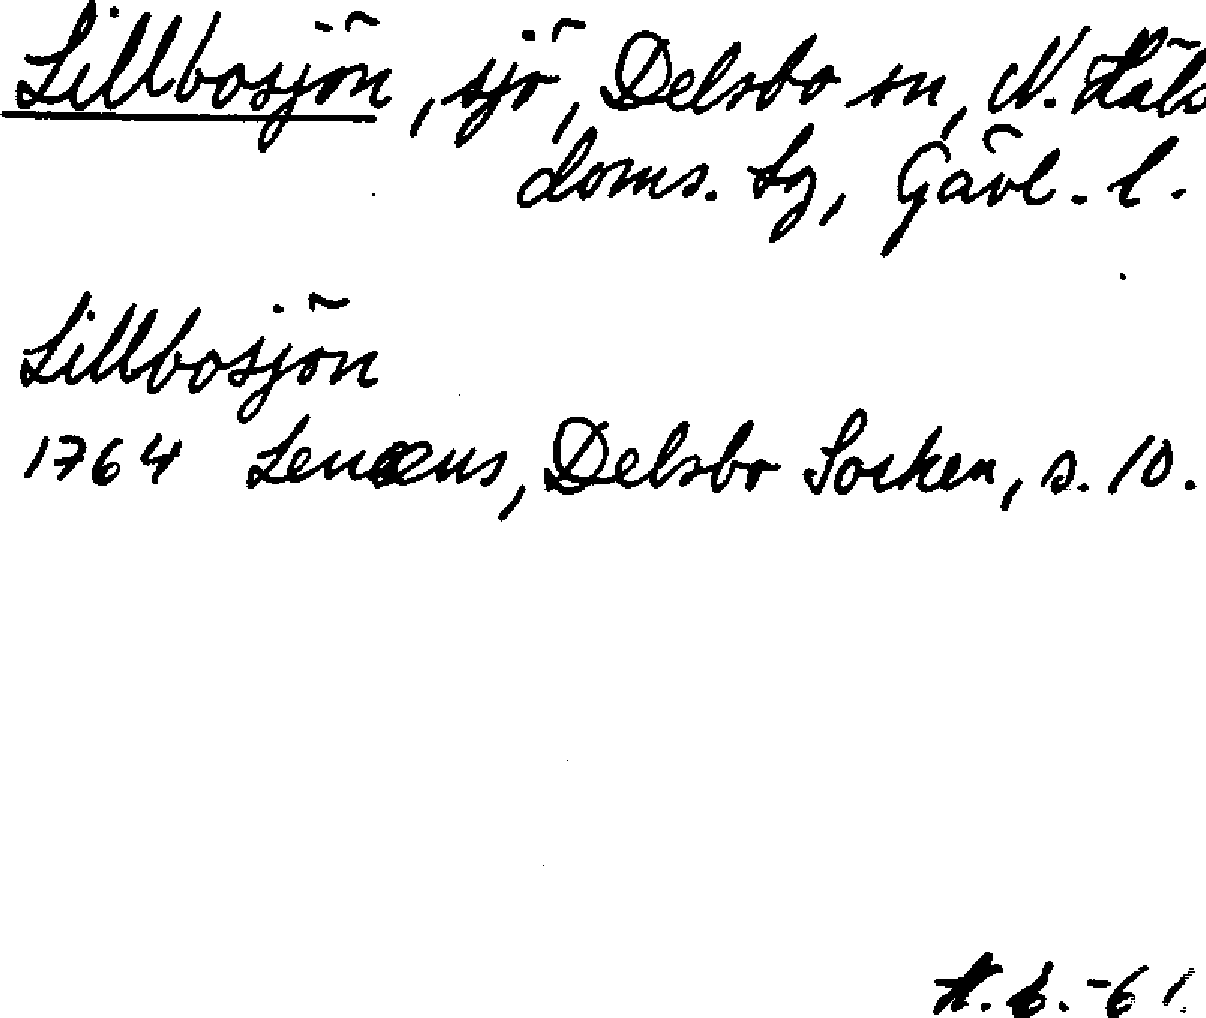 Lillbosjön, sjö, Delsbo sn, N. Häls
doms. tg, Gävl. l.
Lillbosjön
1764 Lenæus, Delsbo Socken, s. 10.
-61